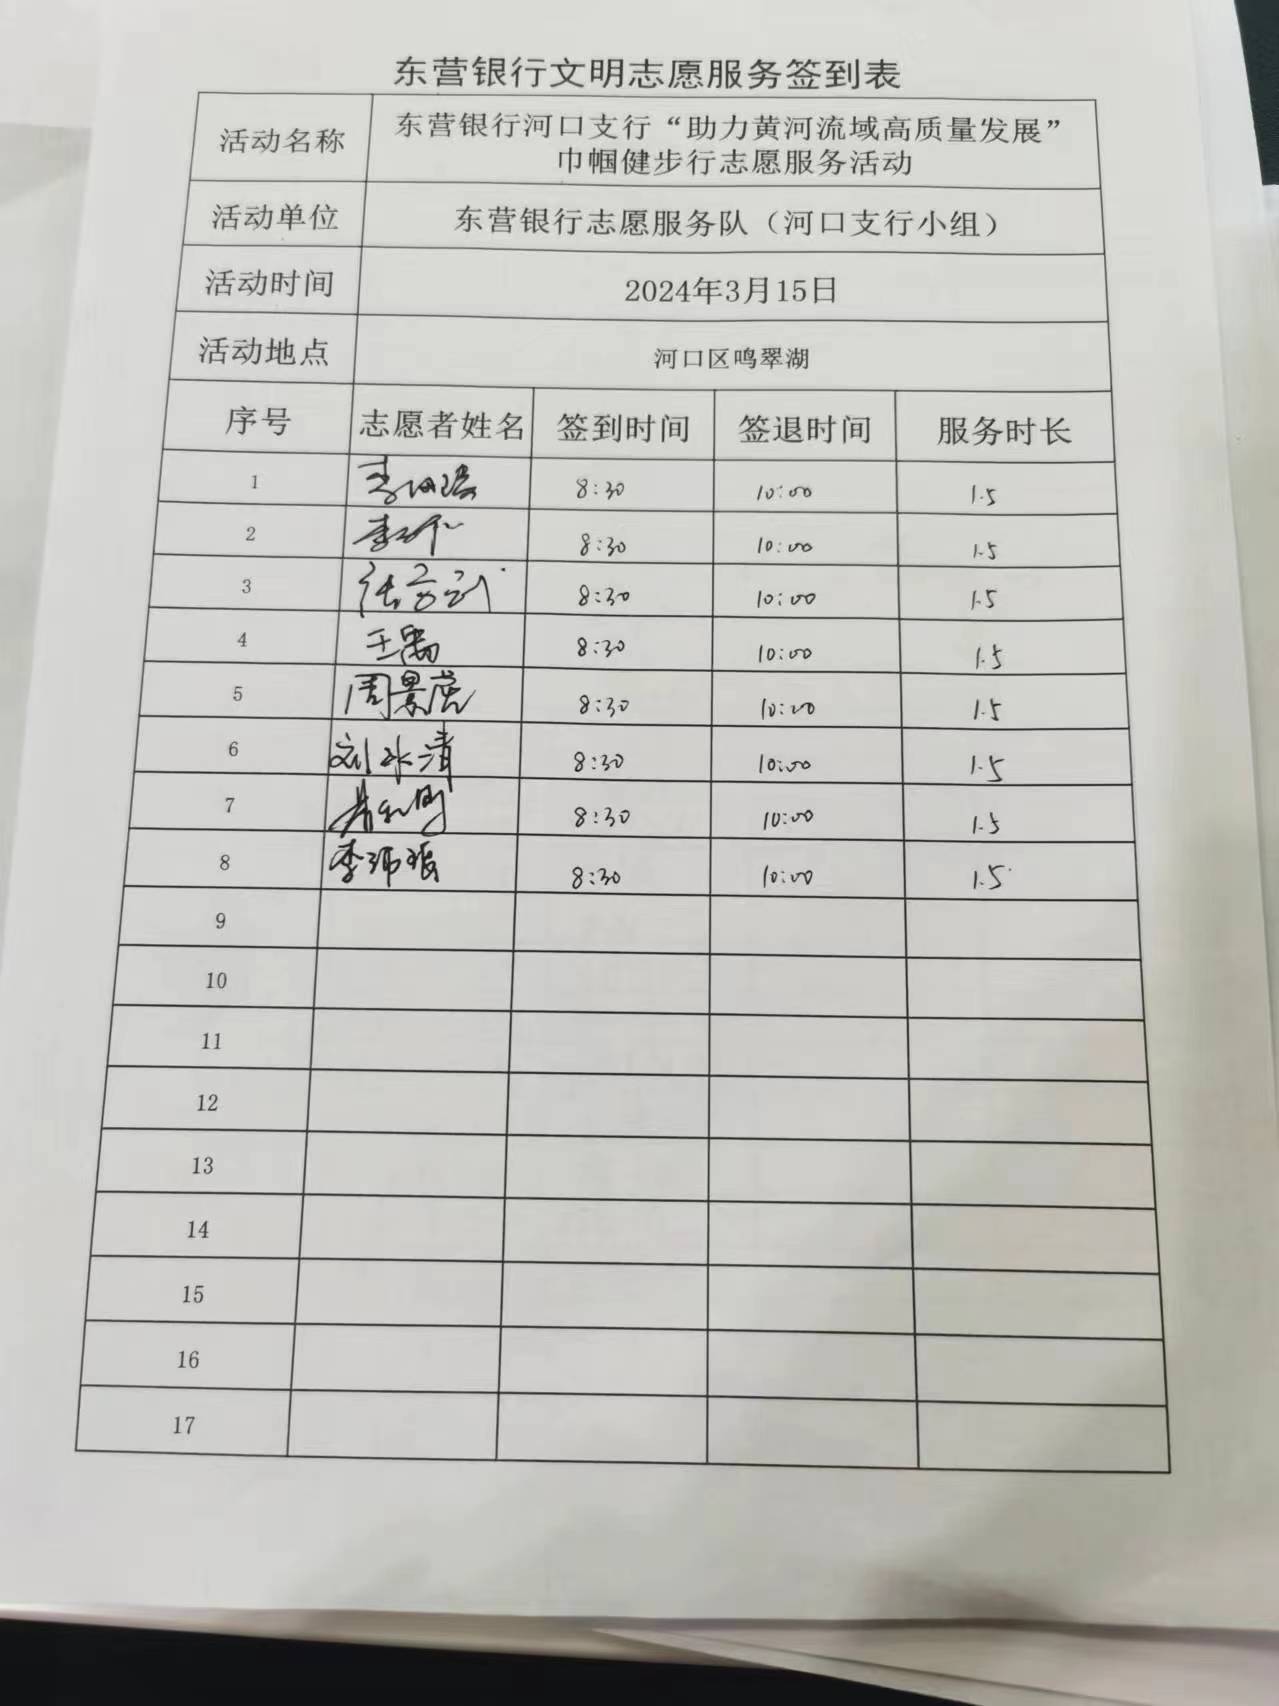 东营银行文明志愿服务签到表
活动名称 东营银行河口支行“助力黄河流域高质量发展”
巾帼健步行志愿服务活动
活动单位 东营银行志愿服务队（河口支行小组）
活动时间 2024年3月15日
活动地点 河口区鸣翠湖
序号 志愿者姓名 签到时间 签退时间 服务时长
1 8:30 10:00 1.5
2 8:30 10:00 1.5
3 8:30 10:00 1.5
4 王禹 8:30 10:00 1.5
5 周景 8:30 10:00 1.5
6 刘冰清 8:30 10:00 1.5
7 8:30 10:00 1.5
8 李 8:30 10:00 1.5
9
10
11
12
13
14
15
16
17